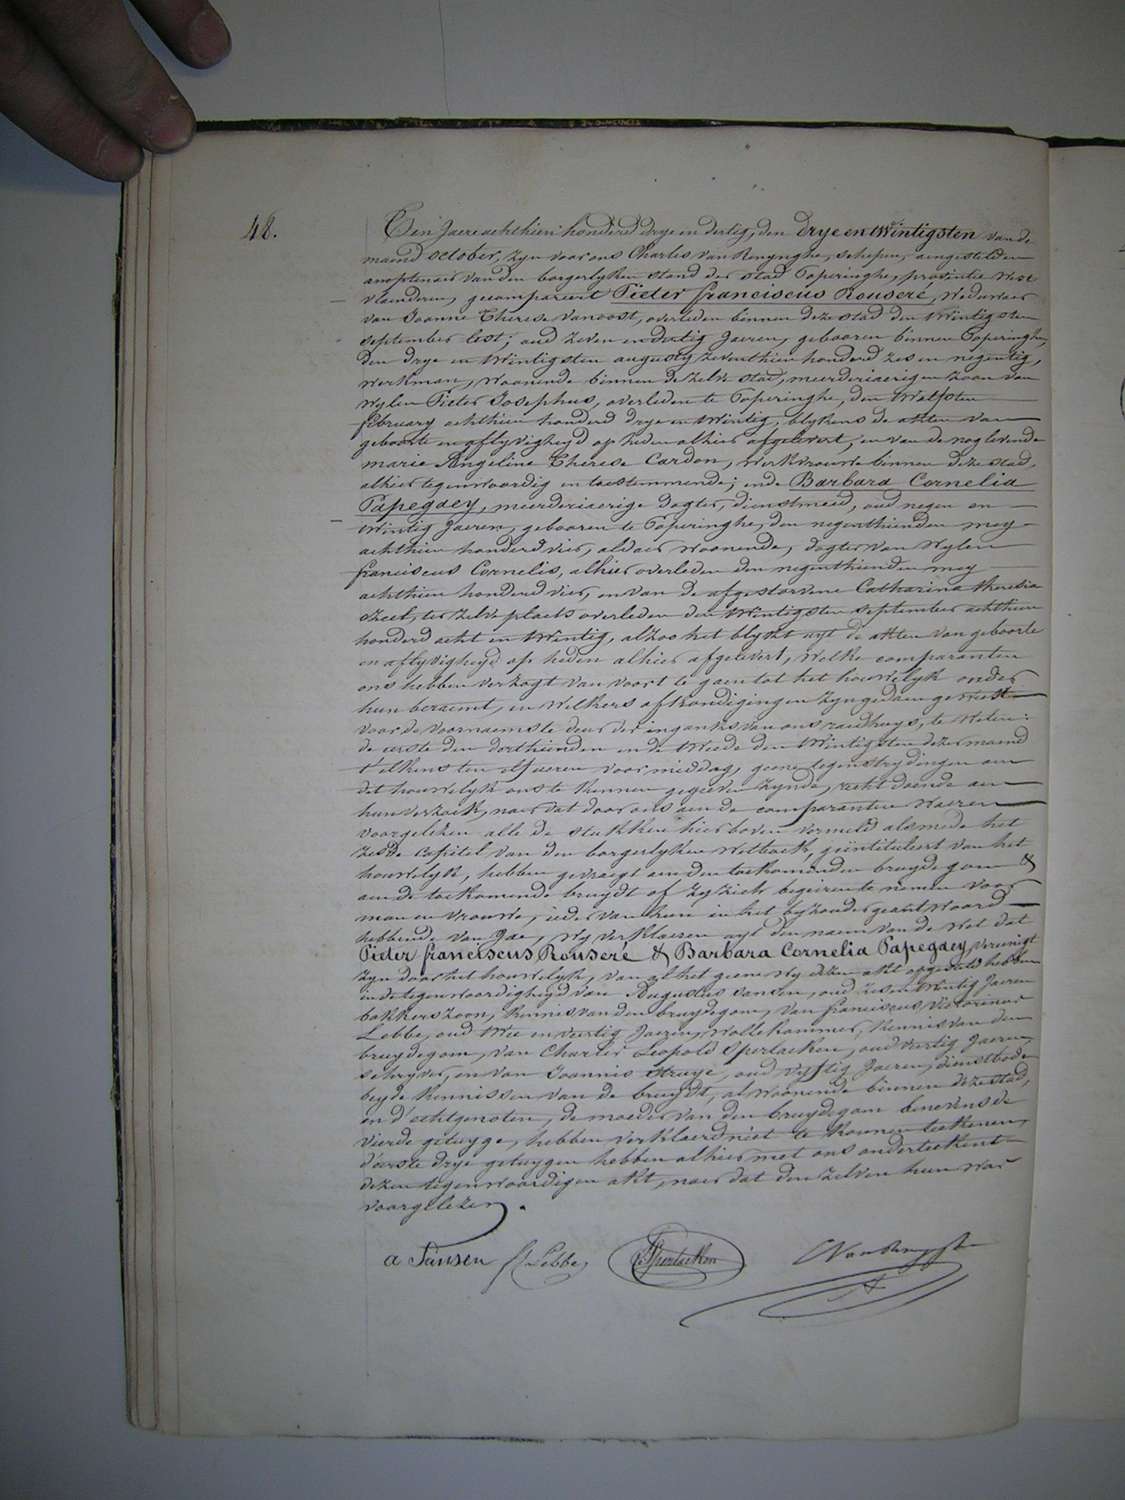 48.
Ten Jaere achthien honderd drye en dertig, den drye en twintigsten van de
maend october, zyn voor ons Charles Van Renynghe, schepen, aengestelden
amptenaer van den borgerlyken stand der stad Poperinghe, provintie west
vlaenderen, gecompareert Pieter franciscus Rouseré, weduwaer
van Joanne Therese Vanoost, overleden binnen deze stad den twintigsten
september lest; oud zeven en dertig Jaeren, gebooren binnen Poperinghe,
den drye en twintigsten augusty zeventhien honderd zes en negentig,
werkman, woonende binnen de zelve stad, meerderiaerigen zoon van
wylen Pieter Josephus, overleden te Poperinghe, den twelfsten
february achthien honderd drye en twintig, blykens de akten van
geboorte en aflyvigheyd op heden alhier afgelevert, en van de nog levende
marie Angeline Therese Cardon, werkvrouwe binnen deze stad,
alhier tegenwoordig en toestemmende; ende Barbara Cornelia
Papegaey, meerderiaerige dogter, dienstmeid, oud negen en
twintig Jaeren, gebooren te Poperinghe, den negenthienden mey
achthien honderd vier, aldaer woonende, dogter van wylen
franciscus Cornelis, alhier overleden den negenthienden mey
achthien honderd vier, en van de afgestorvene Catharina theresia
ter zelve plaets overleden den twintigsten september achthien
honderd acht en twintig, alzoo het blykt uyt de akten van geboorte
en aflyvigheyd op heden alhier afgelevert, welke comparanten
ons hebben verzogt van voort te gaen tot het houwelyk onder
hun beraemt, en welkers afkondigingen zyn gedaen geweest
voor de voornaemste deur der ingank van ons raedhuys, te weten:
de eerste den derthienden en de tweede den twintigsten dezer maend
t'elkens ten elf ueren voor middag, geene tegenstrydingen aen
dit houwelyk ons te kennen gegeven zynde, recht doende aen
hun verzoek, naer dat door ons aen de comparanten waeren
voorgelezen alle de stukken hier boven vermeld alsmede het
zesde capitel van den borgerlyken wetboek, geintituleert van het
houwelyk, hebben gevraegt aen den toekomenden bruydegom &
aen de toekomende bruydt of zy zich begeiren te nemen voor
man en vrouwe, ieder van hun in het byzonder geantwoord
hebbende van Jae, wy verklaeren uyt den naem van de wet dat
Pieter franciscus Rouseré & Barbara Cornelia Papegaey, vereenigt
zyn door het houwelyk, van al het geene wy dezen akt opgesteld hebben
in de tegenwoordigheyd van Augustus Jansen, oud zes en twintig Jaeren
bakkerszoon, kennis van den bruydegom, van franciscus Victorinus
Lebbe, oud twee en veertig Jaeren, wollekammer, kennis van den
bruydegom, van Charles Leopold Sperlaeken, oud veertig Jaeren,
schryver, en van Joannis Struye, oud vyftig Jaeren, dienstbode
beyde kennissen van de bruydt, al woonende binnen deze stad,
en d'echtgenoten, de moeder van den bruydegom benevens de
vierde getuyge, hebben verklaerd niet te konnen teekenen,
d'eerste drye getuygen hebben alhier met ons onderteekent
dezen tegenwoordigen akt, naer dat den zelven hun was
voorgelezen.
a Jansen f Lebbe Sperlaeken